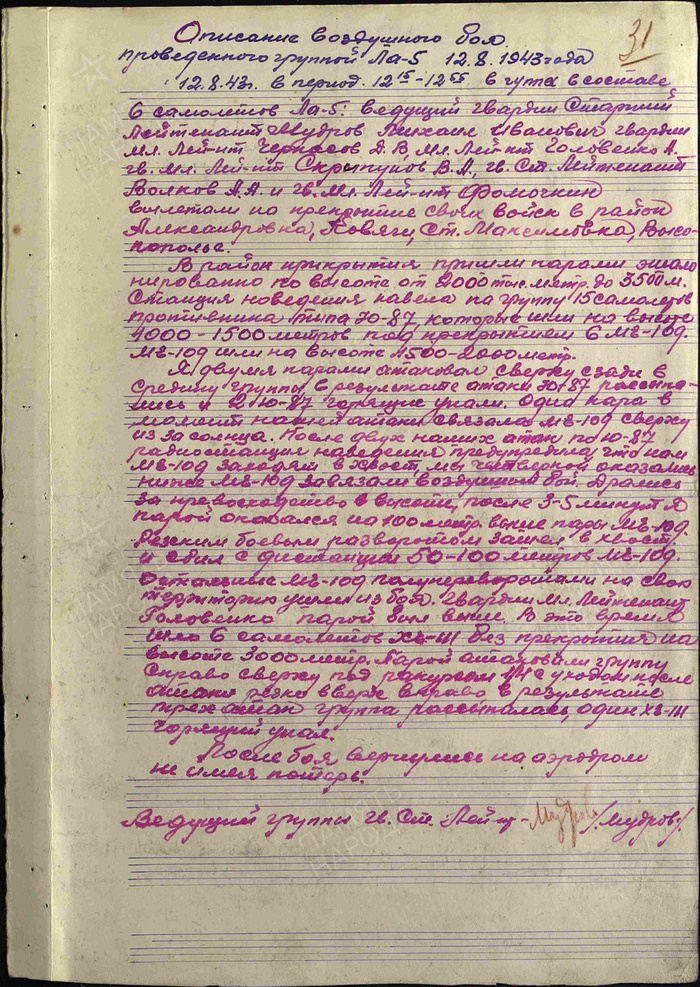 31
Описание воздушного боя
проведенного группой Ла-5 12.8.1943 года
12.8.43г. в период 12 15 - 12 55 в группе в составе
6 самолетов Ла-5: ведущий гвардии Старший
Лейтенант Мудров Михаил Иванович гвардии
мл. Лей-нт Черкасов Д.В, Мл. Лей-нт Головенко А.
гв. мл. Лей-нт Скрыпунов В.А., гв. Ст. Лейтенант
Волков А.А и гв. Мл. Лей-нт Фомочкин
вылетали на прекрытие своих войск в район
Александровка, Ковяги, Ст. Максимовка, Высо-
кополье.
В район прикрытия пришли парами эшело
нированно по высоте от 2000 тыс. метр. до 3500 м.
Станция наведения навела на группу 15 самолетов
противника типа Ю-87, которые шли на высоте
4000-1500 метров под прекрытием 6 МЕ-109.
МЕ-109 шли на высоте 1500-2000 метр.
Я двумя парами атаковал сверху сзади в
средину группы, в результате атаки Ю-87 рассыпа-
лись и 2 Ю-87 горящие упали. Одна пара в
момент нашей атаки связала МЕ-109 сверху
из за солнца. После двух наших атак по Ю-87
радиостанция наведения предупредила, что нам
МЕ-109 заходят в хвост, мы четверкой оказались
ниже МЕ-109 завязали воздушный бой. Дрались
за превосходство в высоте, после 3-5 минут я
парой оказался на 100 метр. выше пары МЕ-109.
Резким боевым разворотом зашел в хвост
и сбил с дистанции 50-100 метров МЕ-109.
Остальные МЕ-109 полупереворотами на свою
территорию ушли из боя. Гвардии Мл. Лейтенант
Головенко парой был выше. В это время
шло 6 самолетов ХЕ-111 без прекрытия на
высоте 3000 метр. Парой атаковали группу
справо сверху под ракурсом 1/4 с уходом после
атаки резко вверх вправо в результате
трех атак группа рассыпалась, один ХЕ-111
горящий упал.
После боя вернулись на аэродром
не имея потерь.
Ведущий группы гв. Ст. Лей-нт - Мудров /Мудров/.